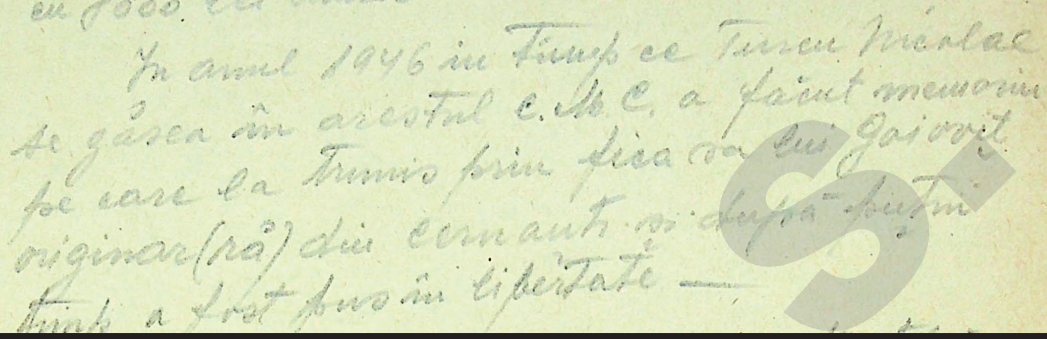 cu 7000 lei
In anul 1946 in timp ce Turcu Nicolae
se găsea în arestul C.M.C. a făcut memoriu
pe care l-a trimis prin fica sa lui Goiovăț
originar(ră) din Cernauti și după puțin
timp a fost pus în libertate —